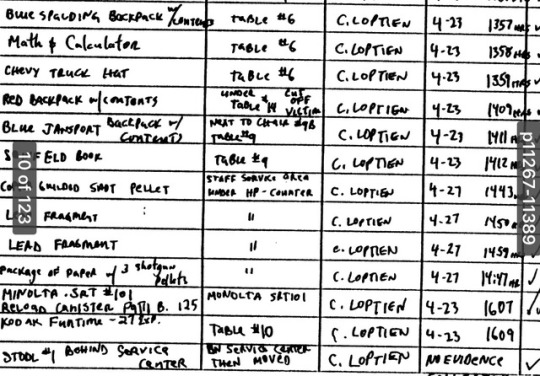 BLUE SPALDING BACKPACK W/CONTENTS TABLE #6 C. LOPTIEN 4-23 1357 HRS
Math & Calculator TABLE #6 C. LOPTIEN 4-23 1358 HRS
CHEVY TRUCK HAT TABLE #6 C. LOPTIEN 4-23 1359 HRS
RED BACKPACK W/CONTENTS UNDER TABLE #14 CUT OFF VICTIM C. LOPTIEN 4-23 1409 HRS
BLUE JANSPORT BACKPACK W/CONTENTS NEXT TO CHAIR #9B TABLE #9 C. LOPTIEN 4-23 1411
BOOK TABLE #9 C. LOPTIEN 4-23 1412
SHOT PELLET STAFF SERVICE AREA UNDER HP-COUNTER C. LOPTIEN 4-27 1443
FRAGMENT " C. LOPTIEN 4-27
LEAD FRAGMENT " C. LOPTIEN 4-27 1459
Package of PAPER W/ 3 shotgun pellets " C. LOPTIEN 4-27 14:47
MINOLTA SRT #101 MONOLTA SRT101 C. LOPTIEN 4-23 1607
RELOAD CANISTER B. 125
KODAK FUNTIME - 27 EXP. TABLE #10 C. LOPTIEN 4-23 1609
STOOL #1 BEHIND SERVICE CENTER BN SERVICE CENTER THEN MOVED C. LOPTIEN NO EVIDENCE
10 of 123
p11267-11389